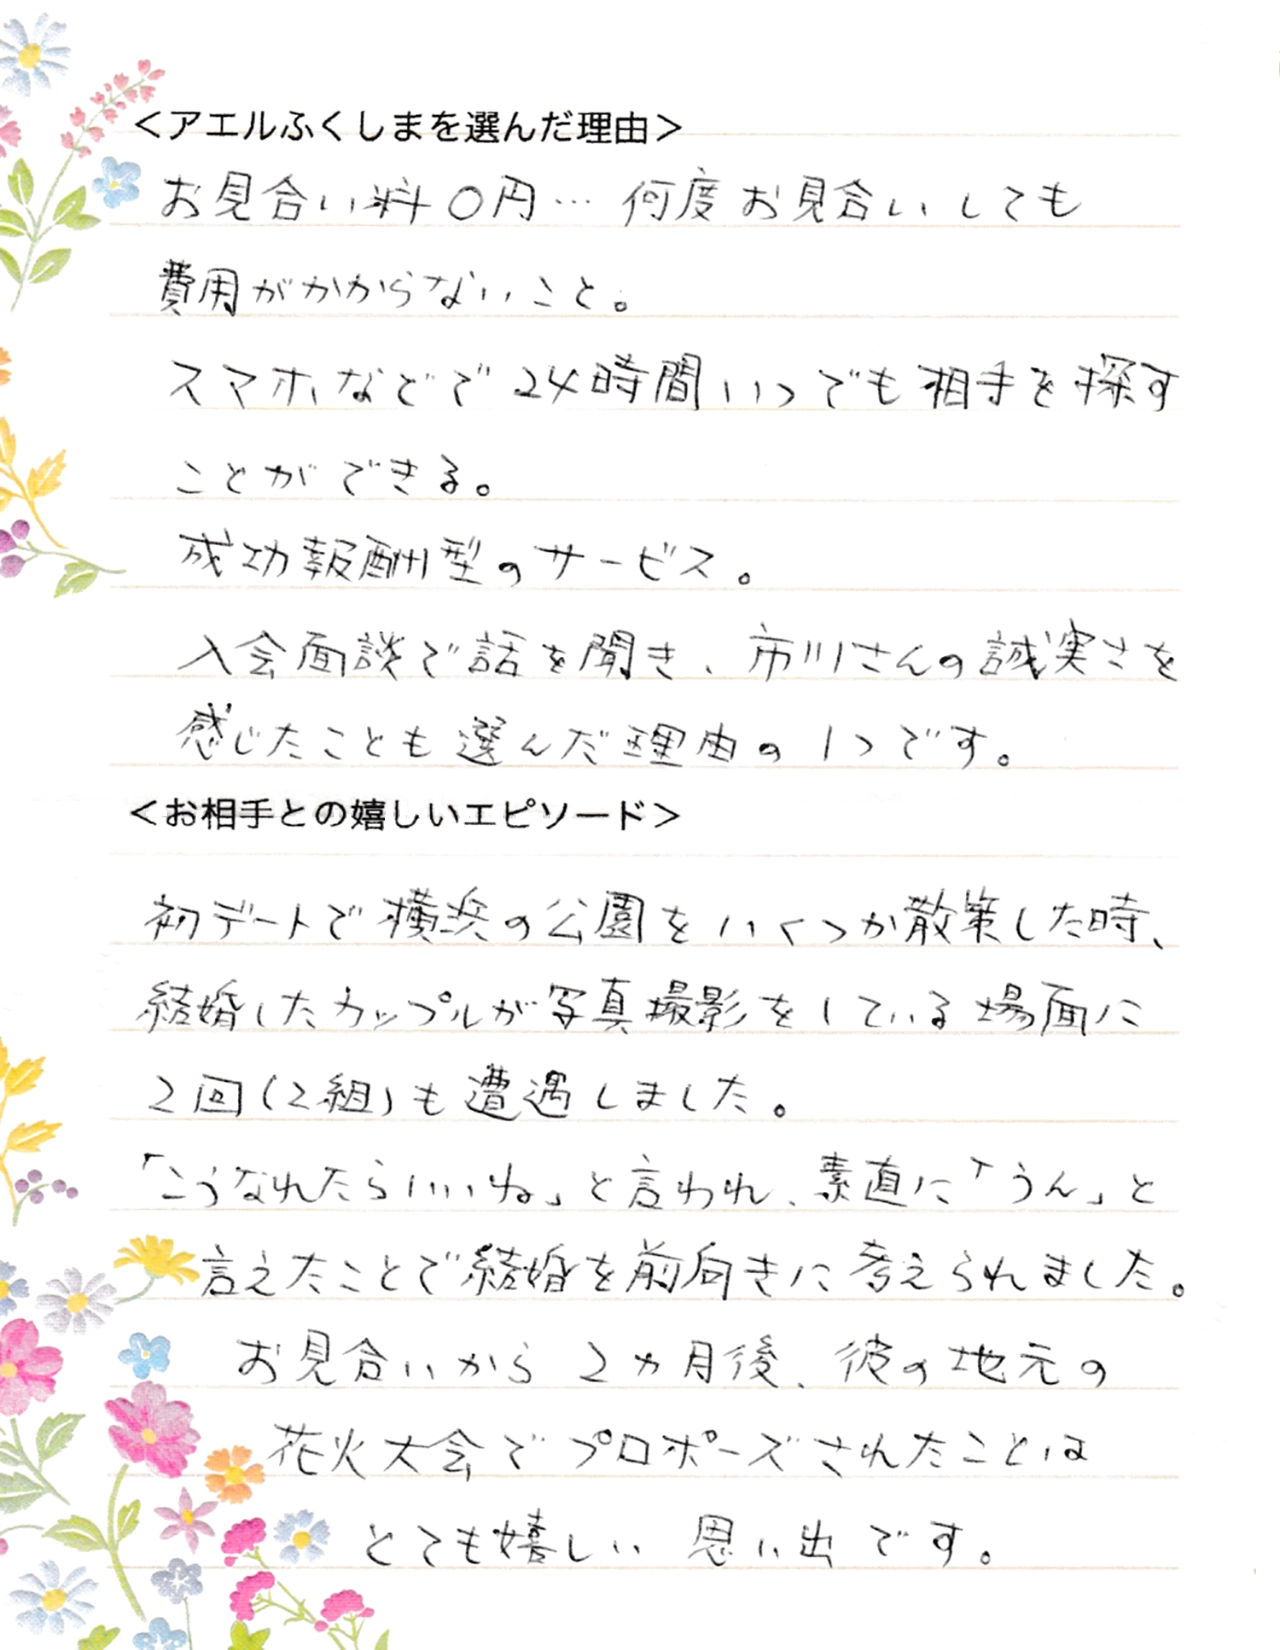 ＜アエルふくしまを選んだ理由＞
お見合い料0円… 何度お見合いしても
費用がかからないこと。
スマホなどで24時間いつでも相手を探す
ことができる。
成功報酬型のサービス。
入会面談で話を聞き、市川さんの誠実さを
感じたことも選んだ理由の1つです。
＜お相手との嬉しいエピソード＞
初デートで横浜の公園をいくつか散策した時、
結婚したカップルが写真撮影をしている場面に
2回(2組)も遭遇しました。
「こうなれたらいいね」と言われ、素直に「うん」と
言えたことで結婚を前向きに考えられました。
お見合いから2ヵ月後、彼の地元の
花火大会でプロポーズされたことは
とても嬉しい思い出です。